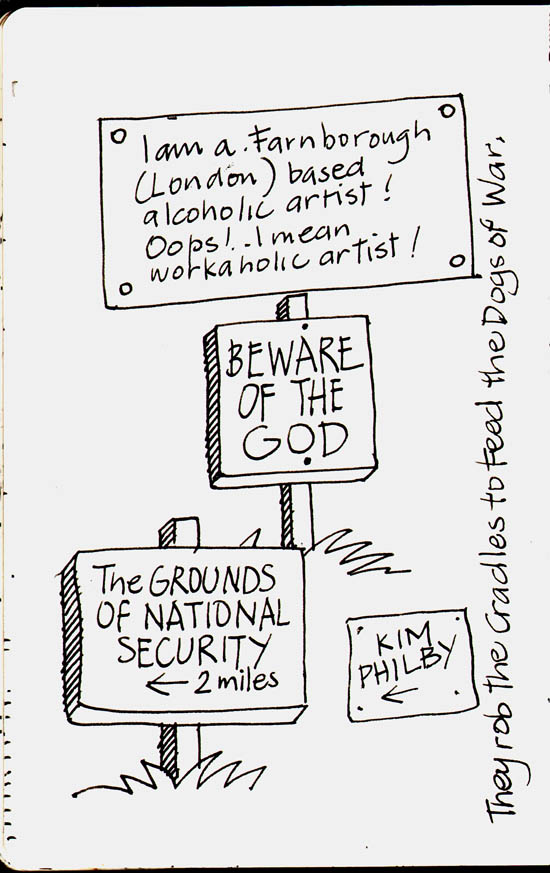 I am a Farnborough
(London) based
alcoholic artist!
Oops!..I mean
workaholic artist!
BEWARE
OF THE
GOD
The GROUNDS
OF NATIONAL
SECURITY
← 2 miles
KIM
PHILBY
←
They rob the Cradles to Feed the Dogs of War.